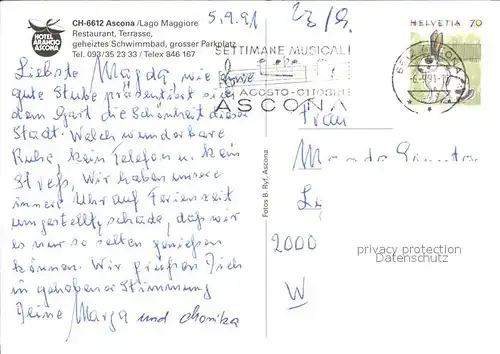 HOTEL ARANCIO ASCONA
CH-6612 Ascona /Lago Maggiore
Restaurant, Terrasse,
geheiztes Schwimmbad, grosser Parkplatz
Tel. 093/35 23 33 / Telex 846 167
5.9.91
23/9.
HELVETIA 70
SETTIMANE MUSICALI
AGOSTO-OTTOBRE
ASCONA
Liebste Magda wie
gute Stube präsentiert sich
dem Gast die Schönheit dieser
Stadt. Welch wunderbare
Ruhe, kein Telefon u. kein
Streß, Wir haben unsere
innere Uhr auf Ferienzeit
umgestellt, schade, daß wir
es nur so selten genießen
können. Wir grüßen Dich
in gehobener Stimmung
Deine Marga und Monika
Fotos B. Ryf, Ascona
Frau
2000
W
privacy protection
Datenschutz